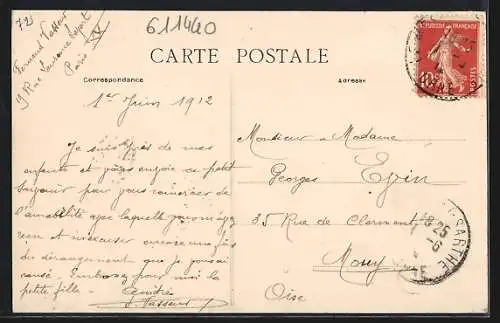 72
611440
Fernand Vasseur
9 Rue
Paris XV
CARTE POSTALE
Correspondance
Adresse
1er Juin 1912
Je suis près de mes
enfants et vous envoie ce petit
bonjour par vous remercier de
l'amabilité avec laquelle vous m'avez
reçu et m'excuser encore une fois
du dérangement que je vous ai
causé. Embrassez pour moi la
petite fille. Amitiés
F. Vasseur
Monsieur & Madame
Georges Epin
35 Rue de Clermont
Mouy
Oise
REPUBLIQUE FRANÇAISE
10c
POSTES
SARTHE